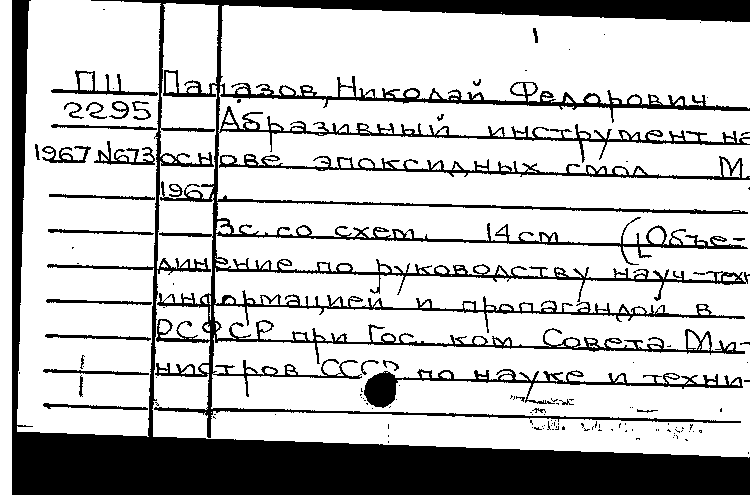 1
П11 Папазов, Николай Федорович
2295 Абразивный инструмент на
1967 N673 основе эпоксидных смол М.
1967.
3с. со схем. 14 см (Объе-
динение по руководству науч.-техн
информацией и пропагандой в
РСФСР при Гос. ком. Совета Ми-
нистров СССР по науке и техни-